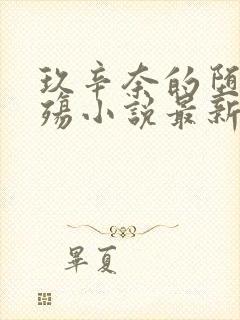 玖辛奈的堕
殇小说最新
畢夏